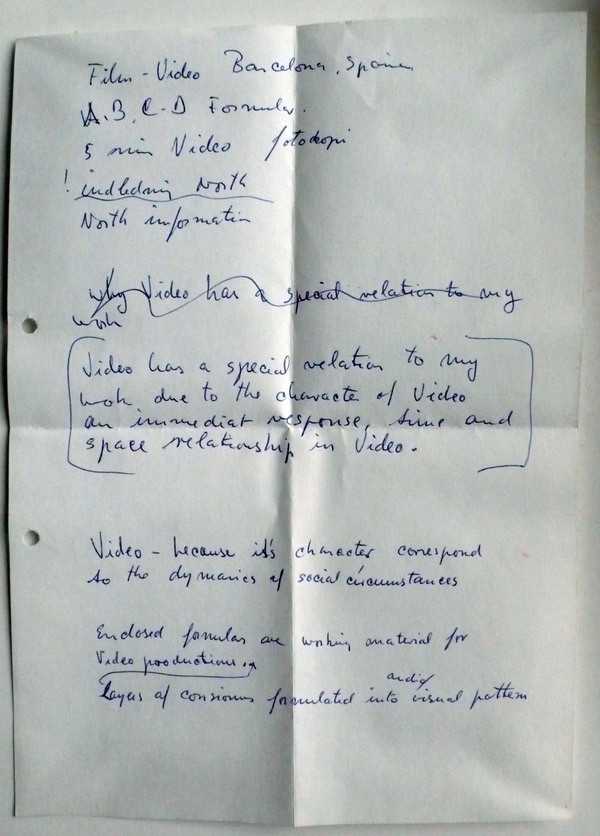 Film - Video Barcelona, Spain
A.B.C-D Formular.
5 min Video fotokopi
! indledning North
North information
why Video has a special relation to my
work
Video has a special relation to my
work due to the character of Video
an immediat response, time and
space relationship in Video.
Video - because it's character correspond
to the dynamics of social circumstances
Enclosed formular are working material for
Video productions.
audio/
layers of consious formulated into visual pattern